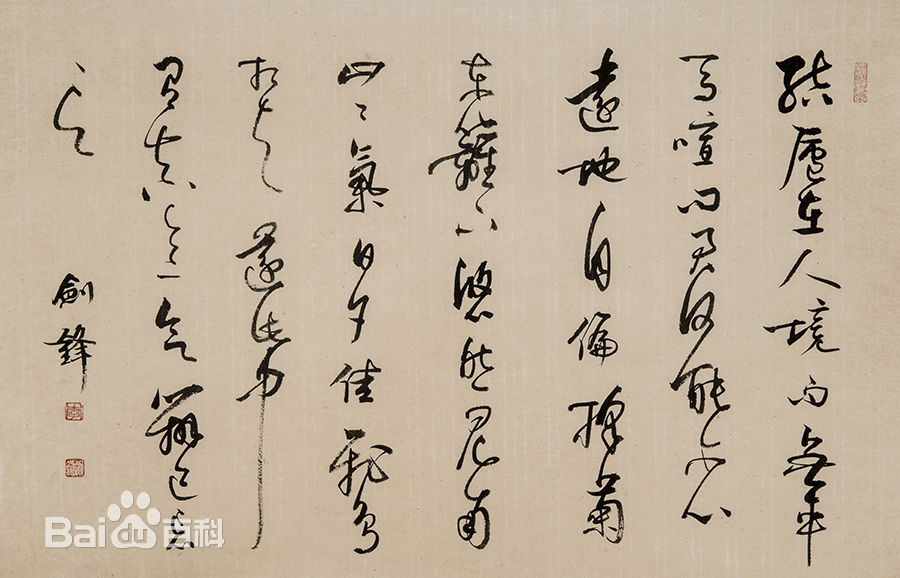 結廬在人境而無車
馬喧問君何能尔心
遠地自偏採菊
東籬下悠然見南
山〻氣日夕佳飛鳥
相与還此中
有真意欲辨已忘
言
劍鋒
Bai百科